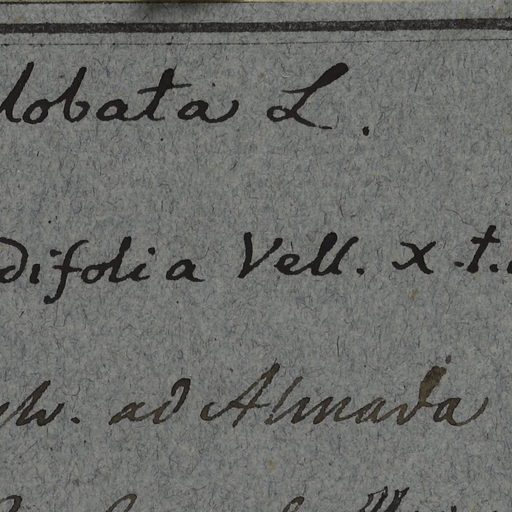 lobata L.
difolia Vell. X. t.
ad Almada